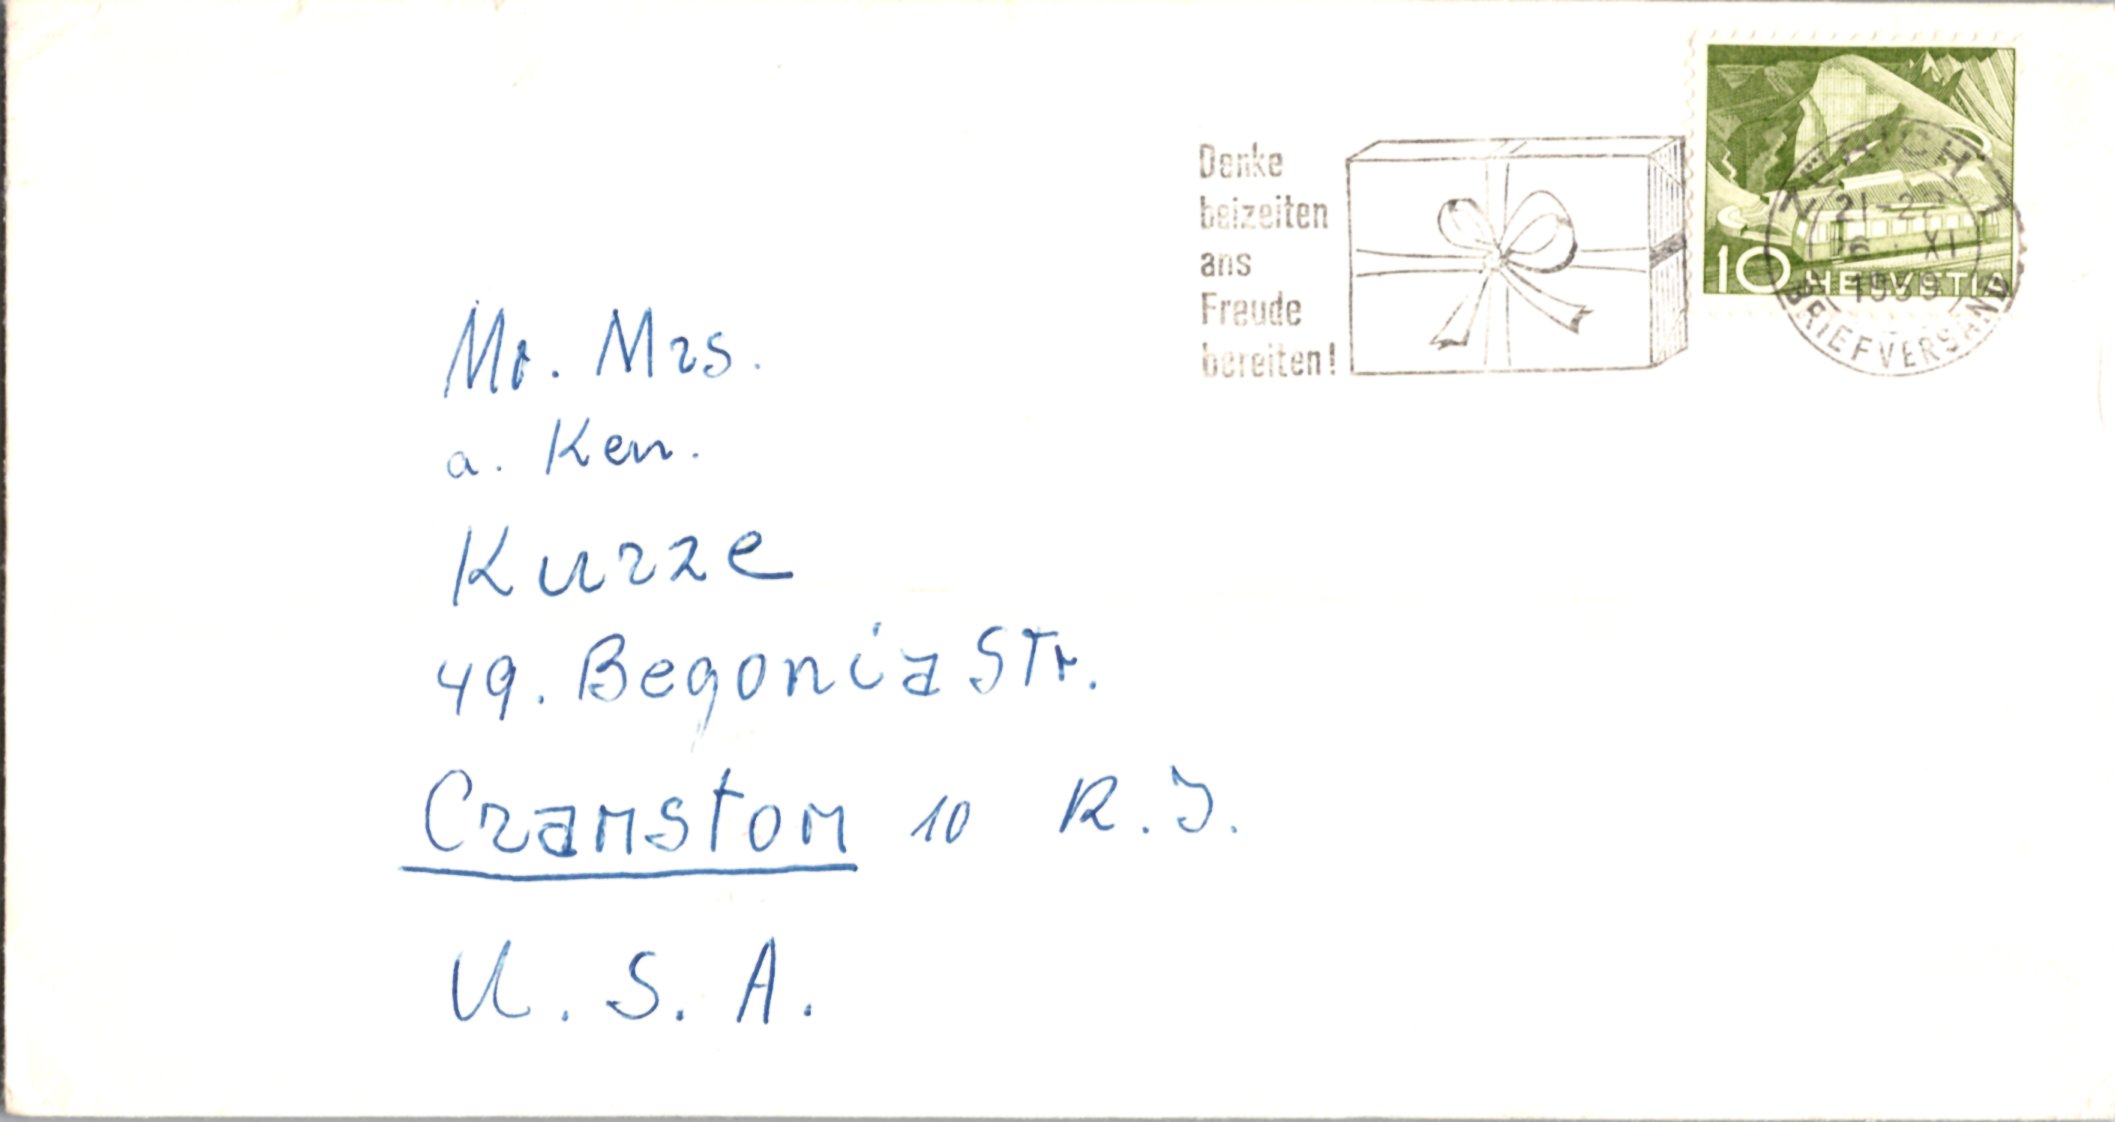 Denke
beizeiten
ans
Freude
bereiten!
ZÜRICH 1
21-22
6. XI
1959
BRIEFVERSAND
10 HELVETIA
Mr. Mrs.
a. Ken.
Kurze
49. Begonia Str.
Cranston 10 R.I.
U.S.A.